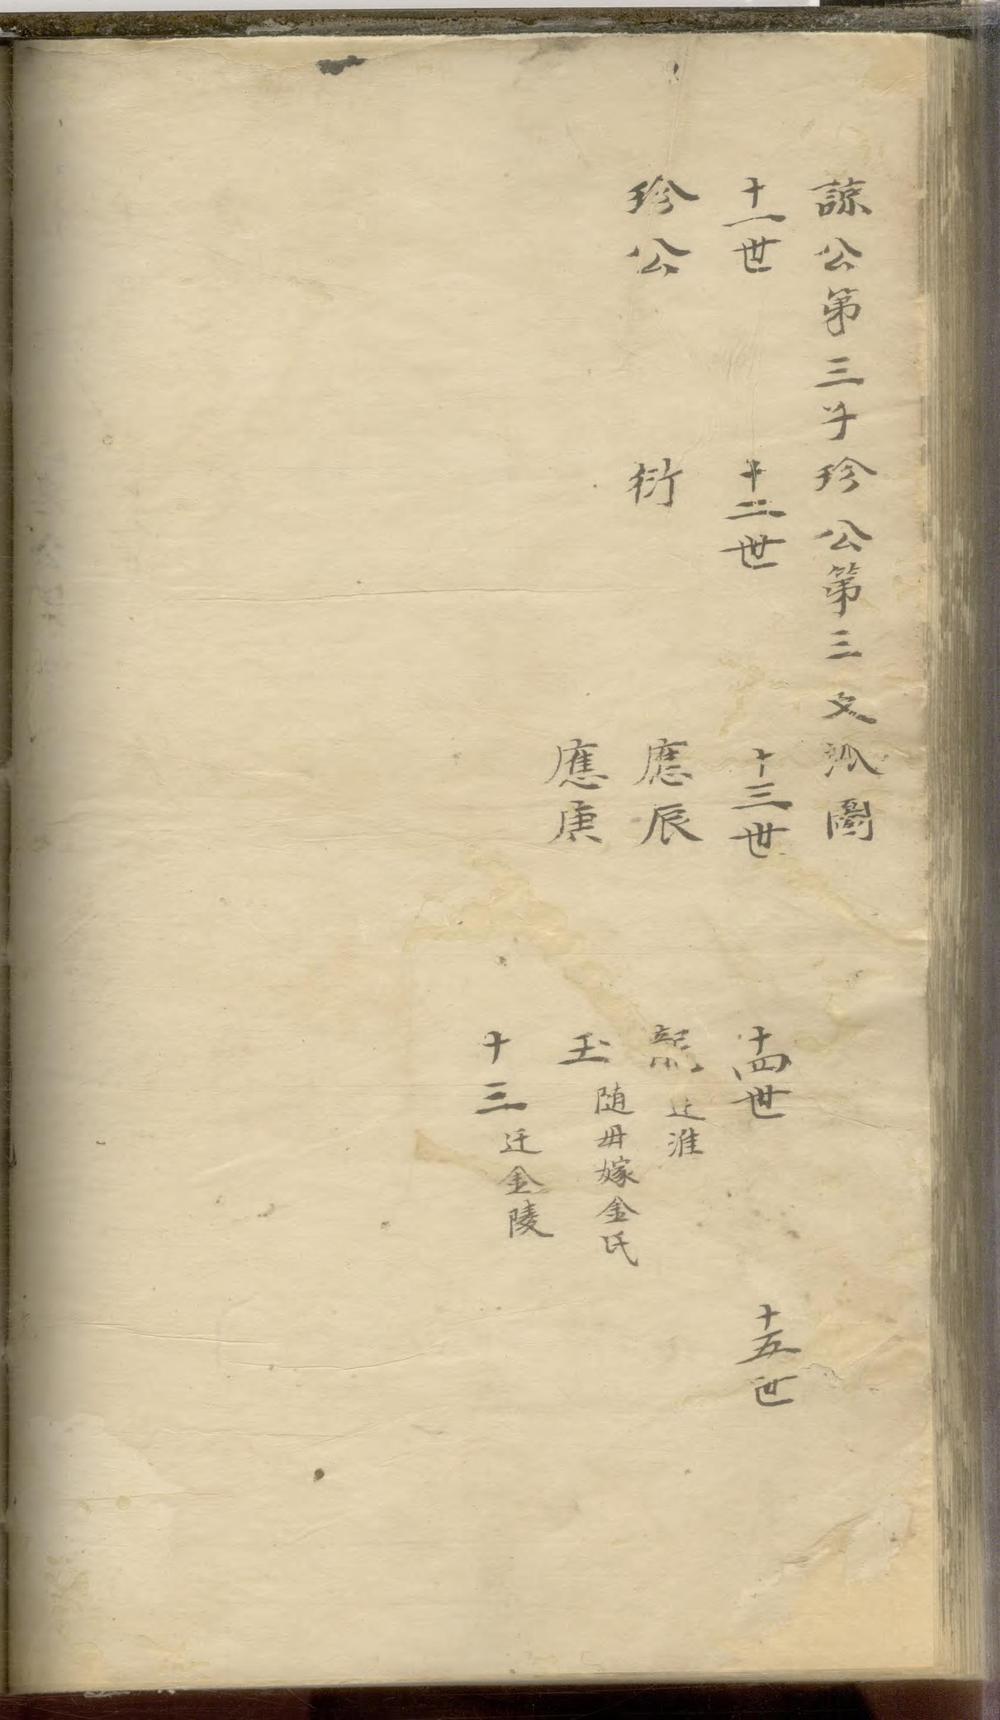 諒公第三子珍公第三文派圖
十一世 十二世 十三世 十四世 十五世
珍公 衍 應辰 迁淮
應庚 玉 随毋嫁金氏
十三 迁金陵